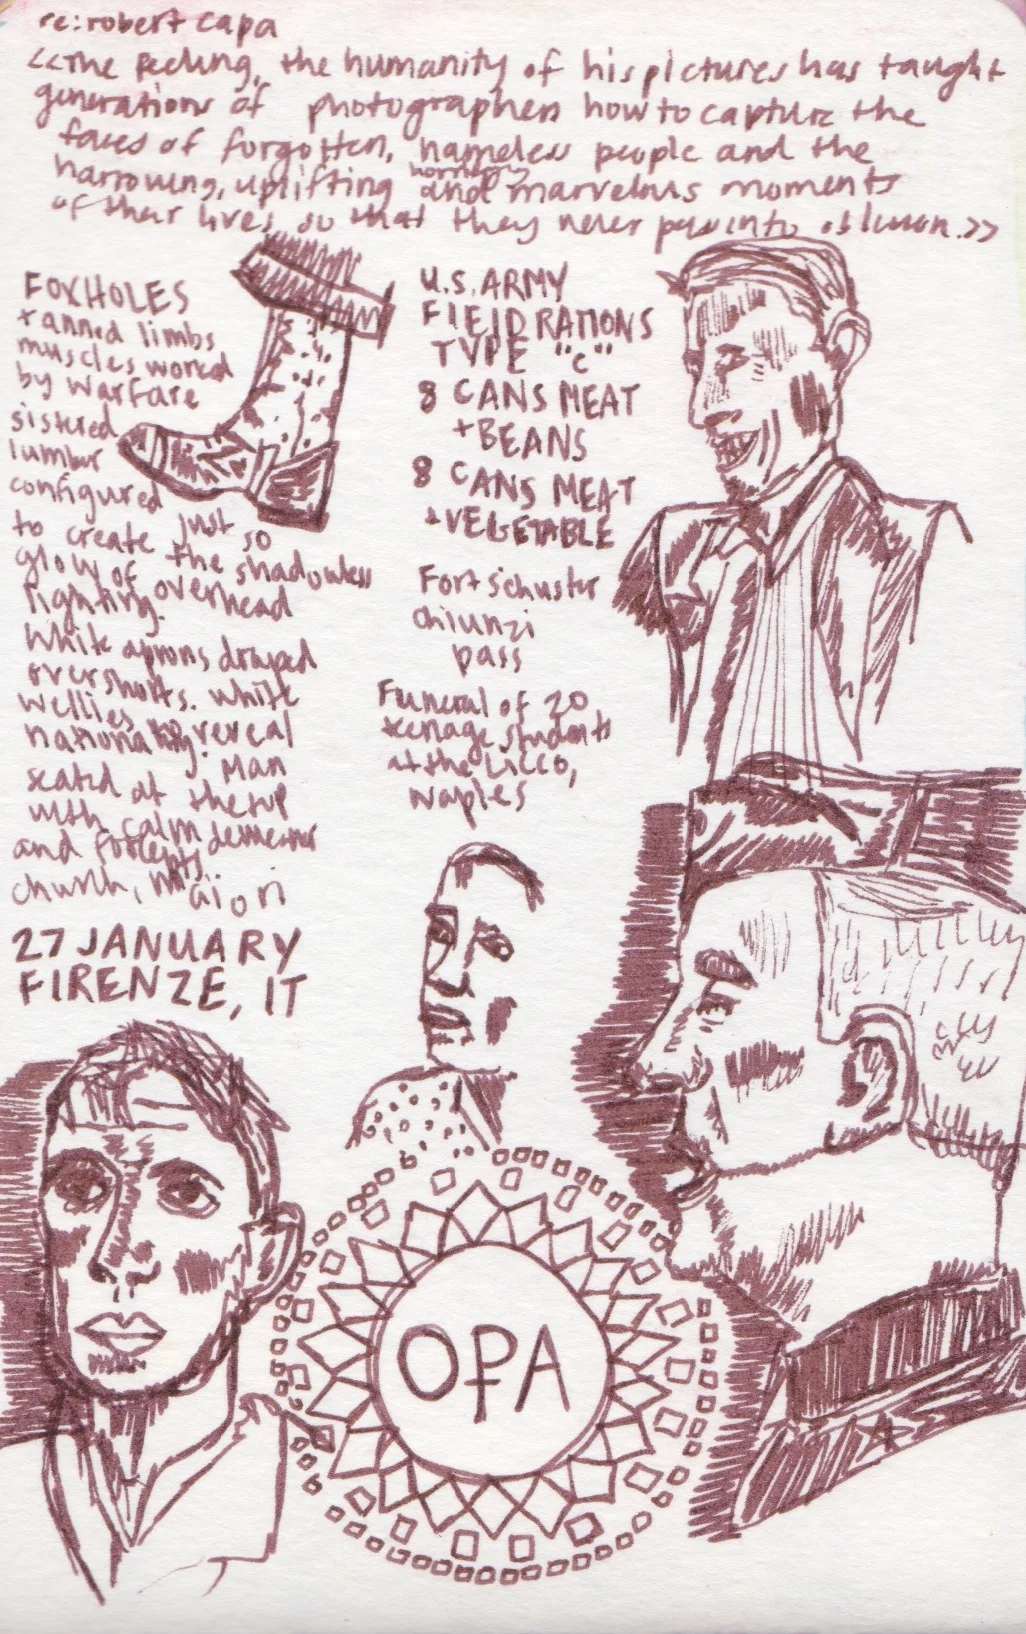 re: robert capa
<<The feeling, the humanity of his pictures has taught
generations of photographers how to capture the
faces of forgotten, nameless people and the
harrowing, uplifting horrifying and marvelous moments
of their lives, so that they never pass into oblivion.>>
FOXHOLES
tanned limbs
muscles worked
by warfare
sistered
lumber
configured
just so
to create the shadowless
glow of overhead
lighting.
White aprons draped
over shorts. White
wellies no reveal
nationality. Man
seated at the top
with calm demeanor
and forceps
church, Maiori
27 JANUARY
FIRENZE, IT
U.S. ARMY
FIELD RATIONS
TYPE "C"
8 CANS MEAT
+ BEANS
8 CANS MEAT
+ VEGETABLE
Fort Schuster
Chiunzi
pass
Funeral of 20
teenage students
at the Liceo,
Naples
OPA